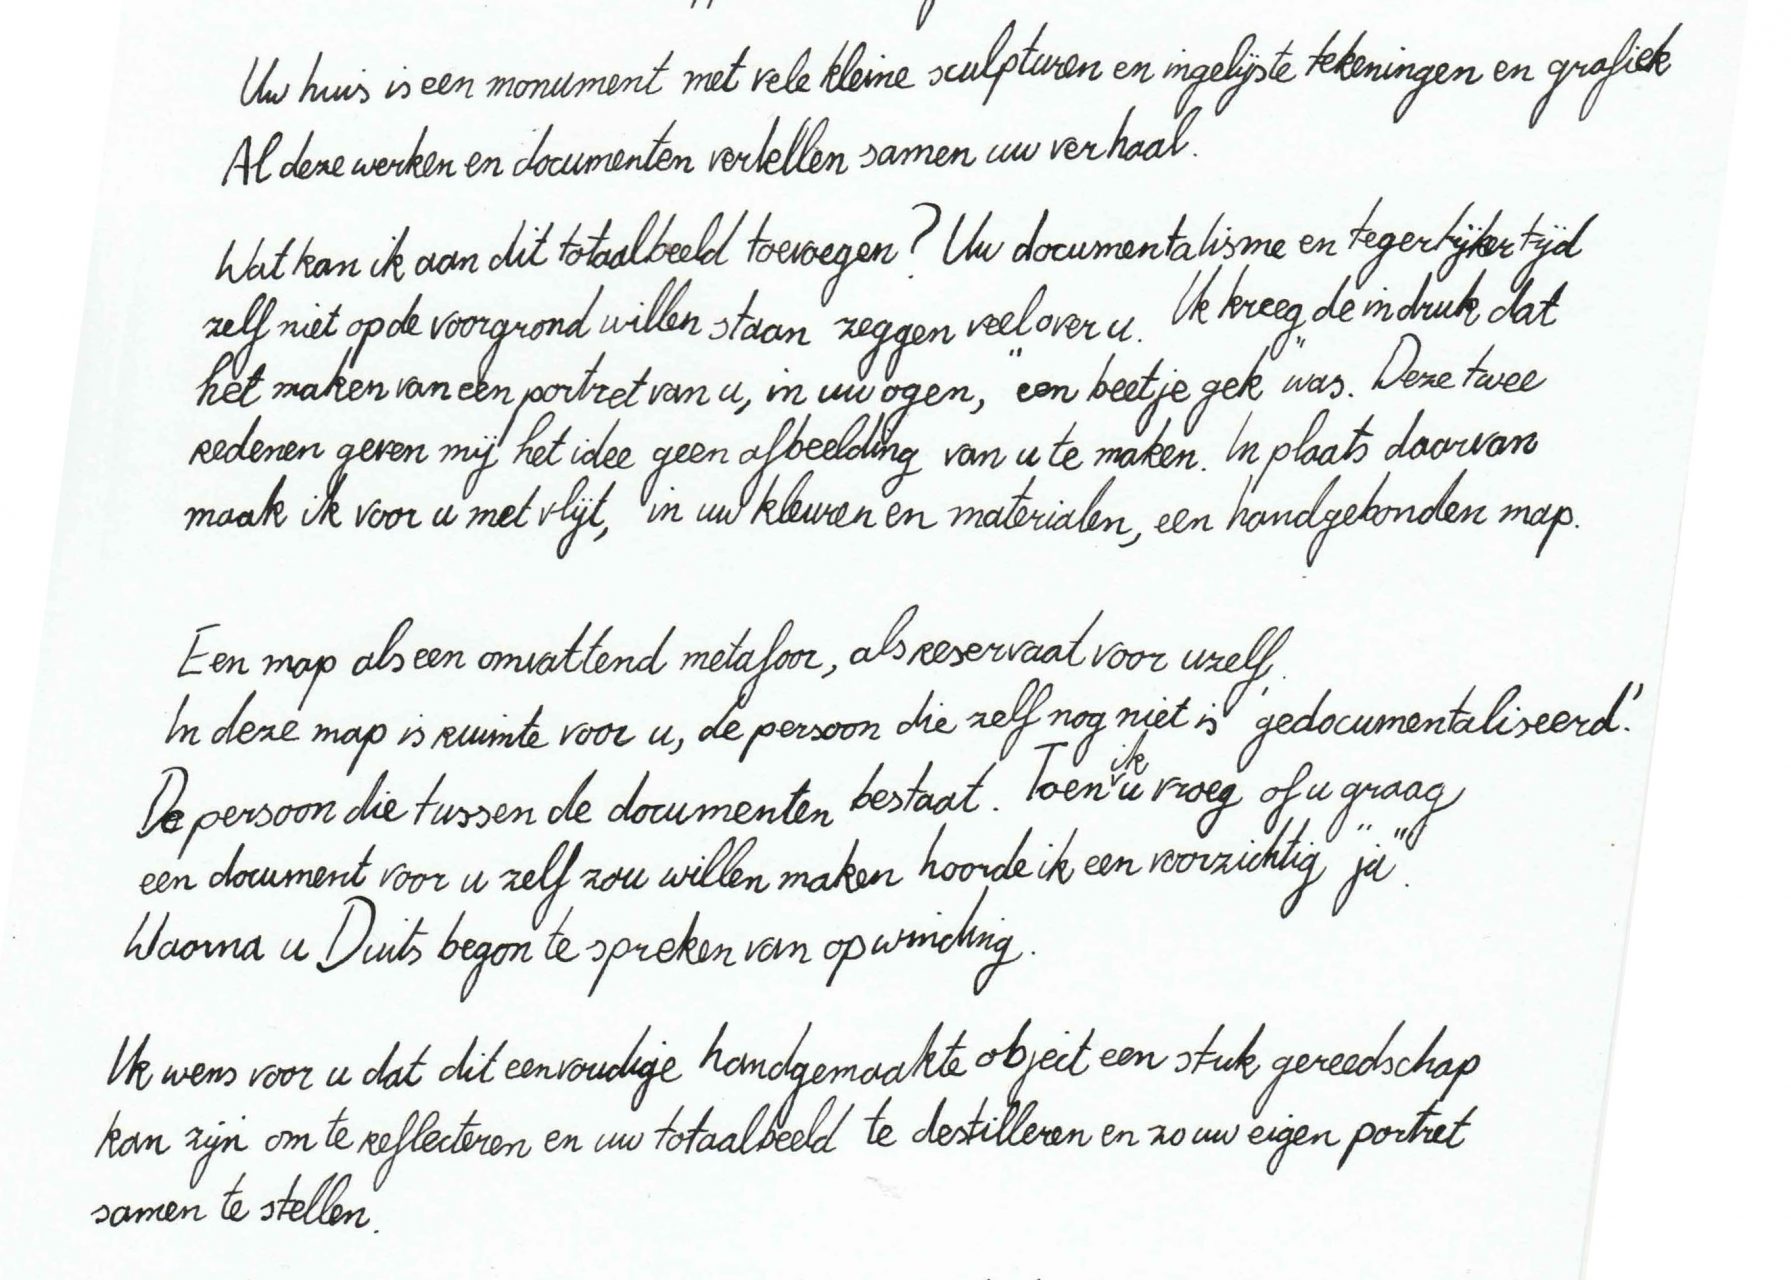 Uw huis is een monument met vele kleine sculpturen en ingelijste tekeningen en grafiek
Al deze werken en documenten vertellen samen uw verhaal.
Wat kan ik aan dit totaalbeeld toevoegen? Uw documentalisme en tegerlijkertijd
zelf niet op de voorgrond willen staan zeggen veel over u. Ik kreeg de indruk dat
het maken van een portret van u, in uw ogen, "een beetje gek" was. Deze twee
redenen geven mij het idee geen afbeelding van u te maken. In plaats daarvan
maak ik voor u met vlijt, in uw kleuren en materialen, een handgebonden map.
Een map als een omvattend metafoor, als reservaat voor uzelf.
In deze map is ruimte voor u, de persoon die zelf nog niet is 'gedocumentaliseerd'.
De persoon die tussen de documenten bestaat. Toen ik u vroeg of u graag
een document voor u zelf zou willen maken hoorde ik een voorzichtig "ja".
Waarna u Duits begon te spreken van opwinding.
Ik wens voor u dat dit eenvoudige handgemaakte object een stuk gereedschap
kan zijn om te reflecteren en uw totaalbeeld te destilleren en zo uw eigen portret
samen te stellen.